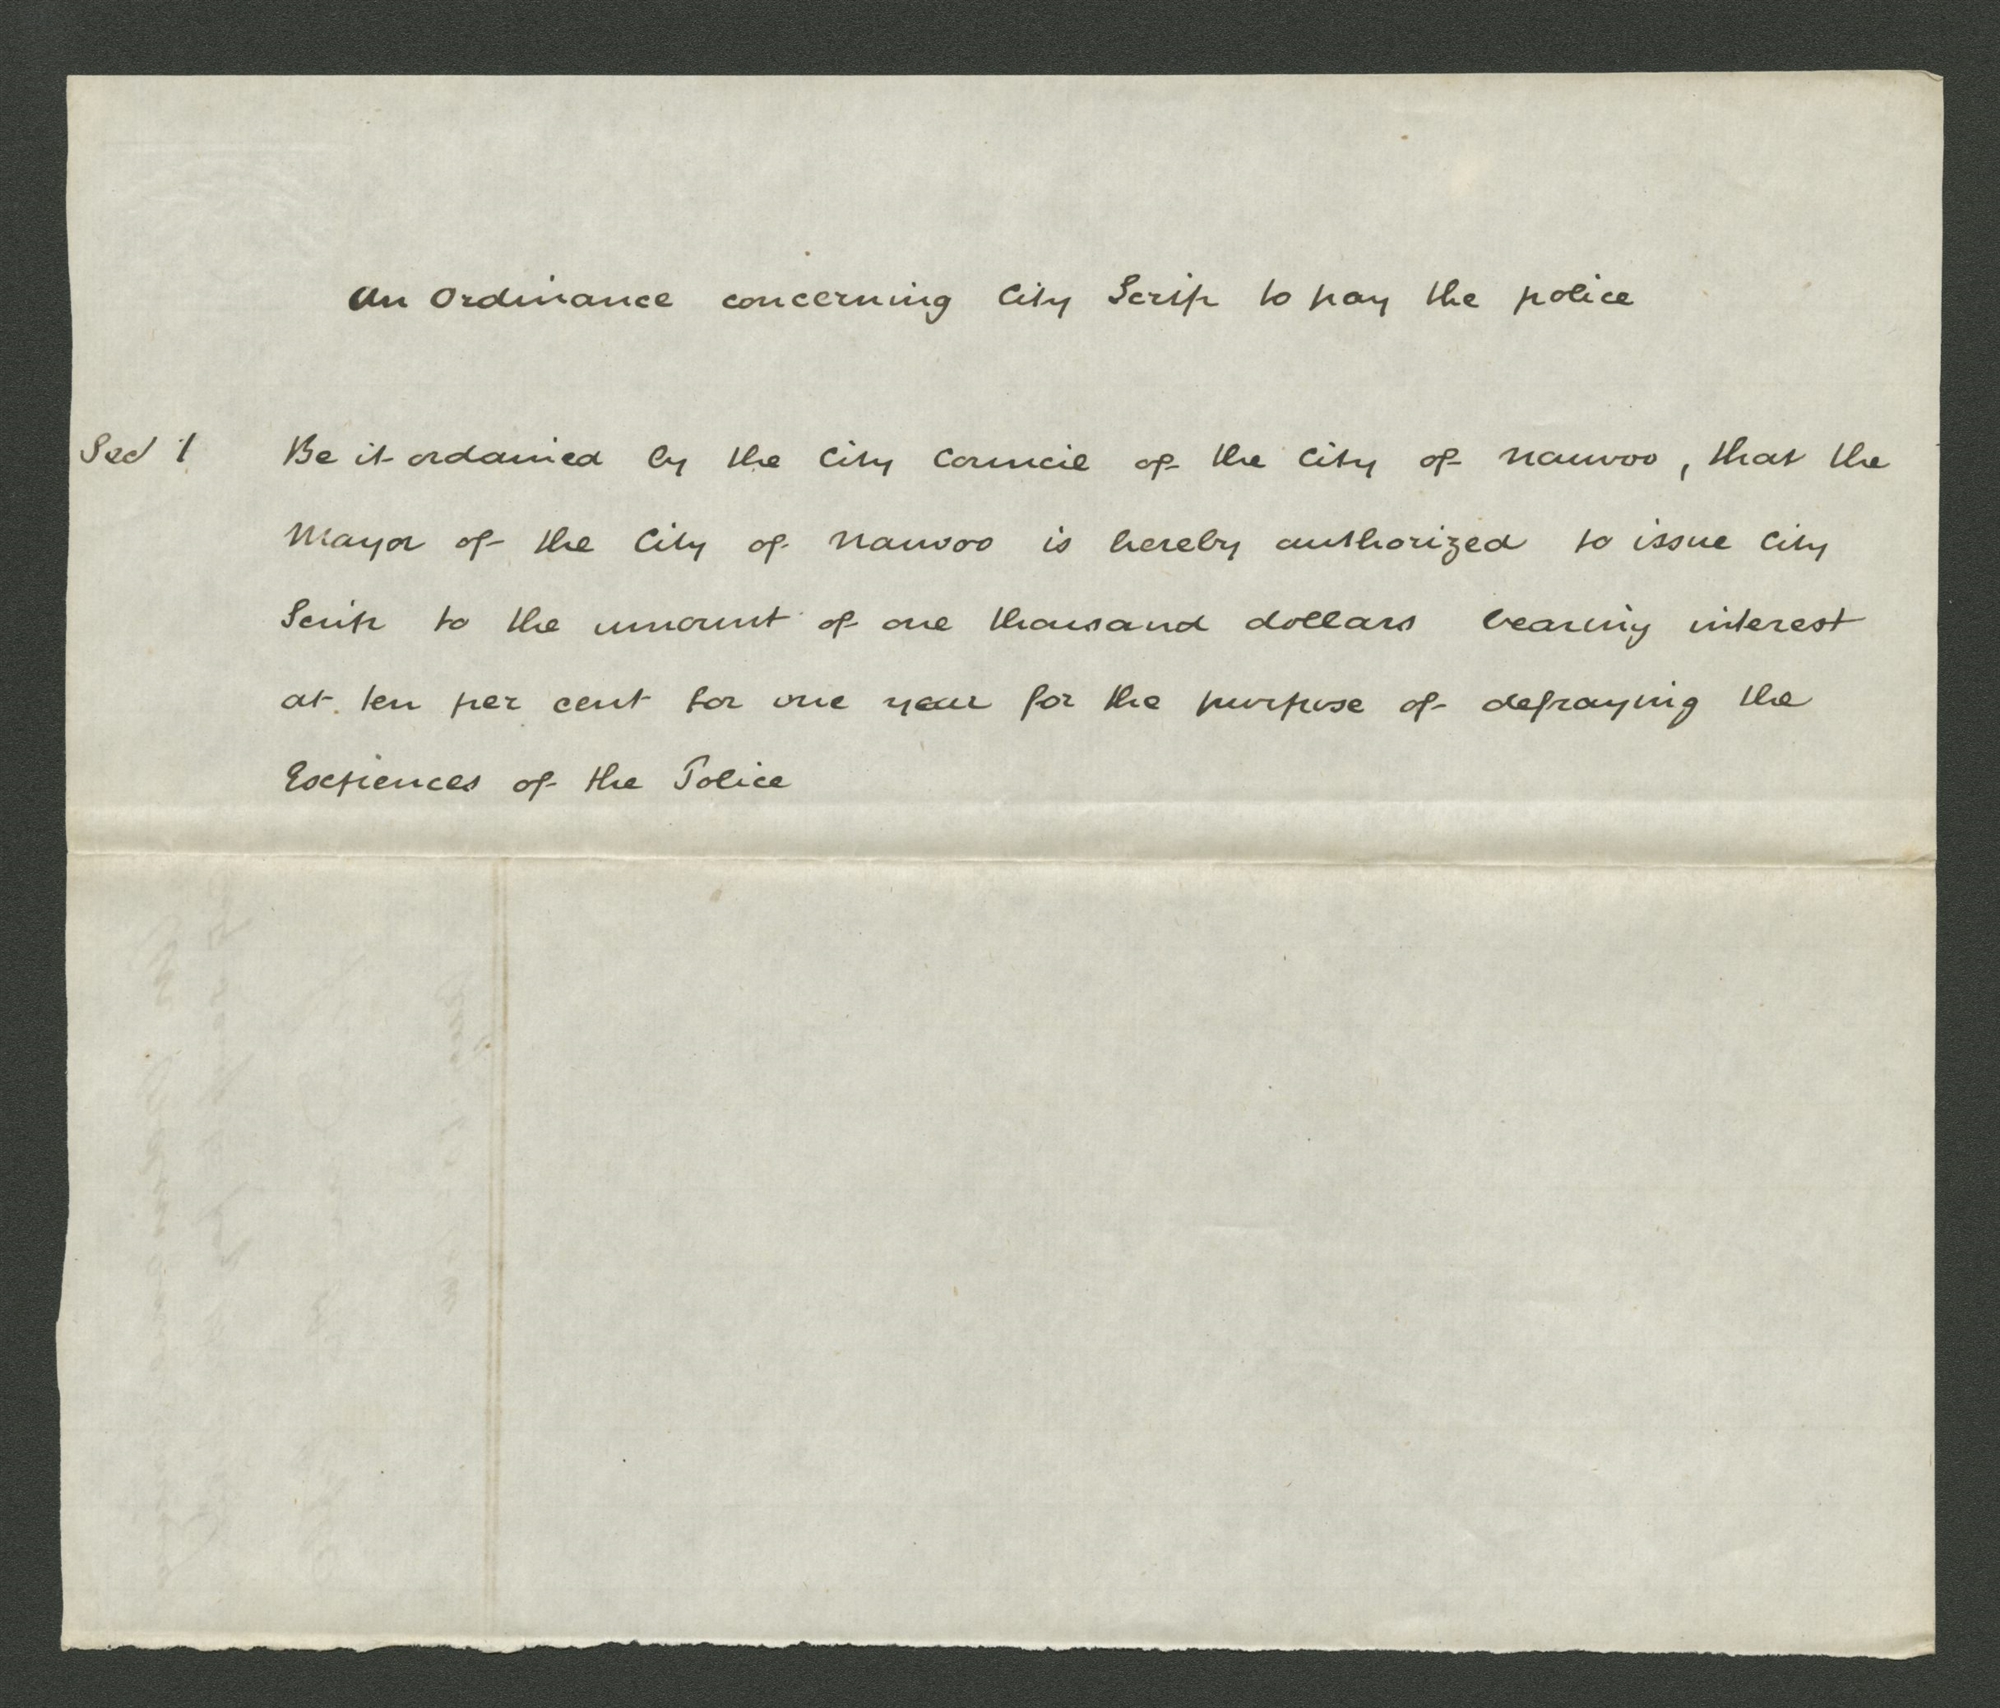 An Ordinance concerning City Scrip to pay the police
Sec 1 Be it ordained by the City Council of the City of Nauvoo, that the
Mayor of the City of Nauvoo is hereby authorized to issue City
Scrip to the amount of one thousand dollars bearing interest
at ten per cent for one year for the purpose of defraying the
Expences of the Police